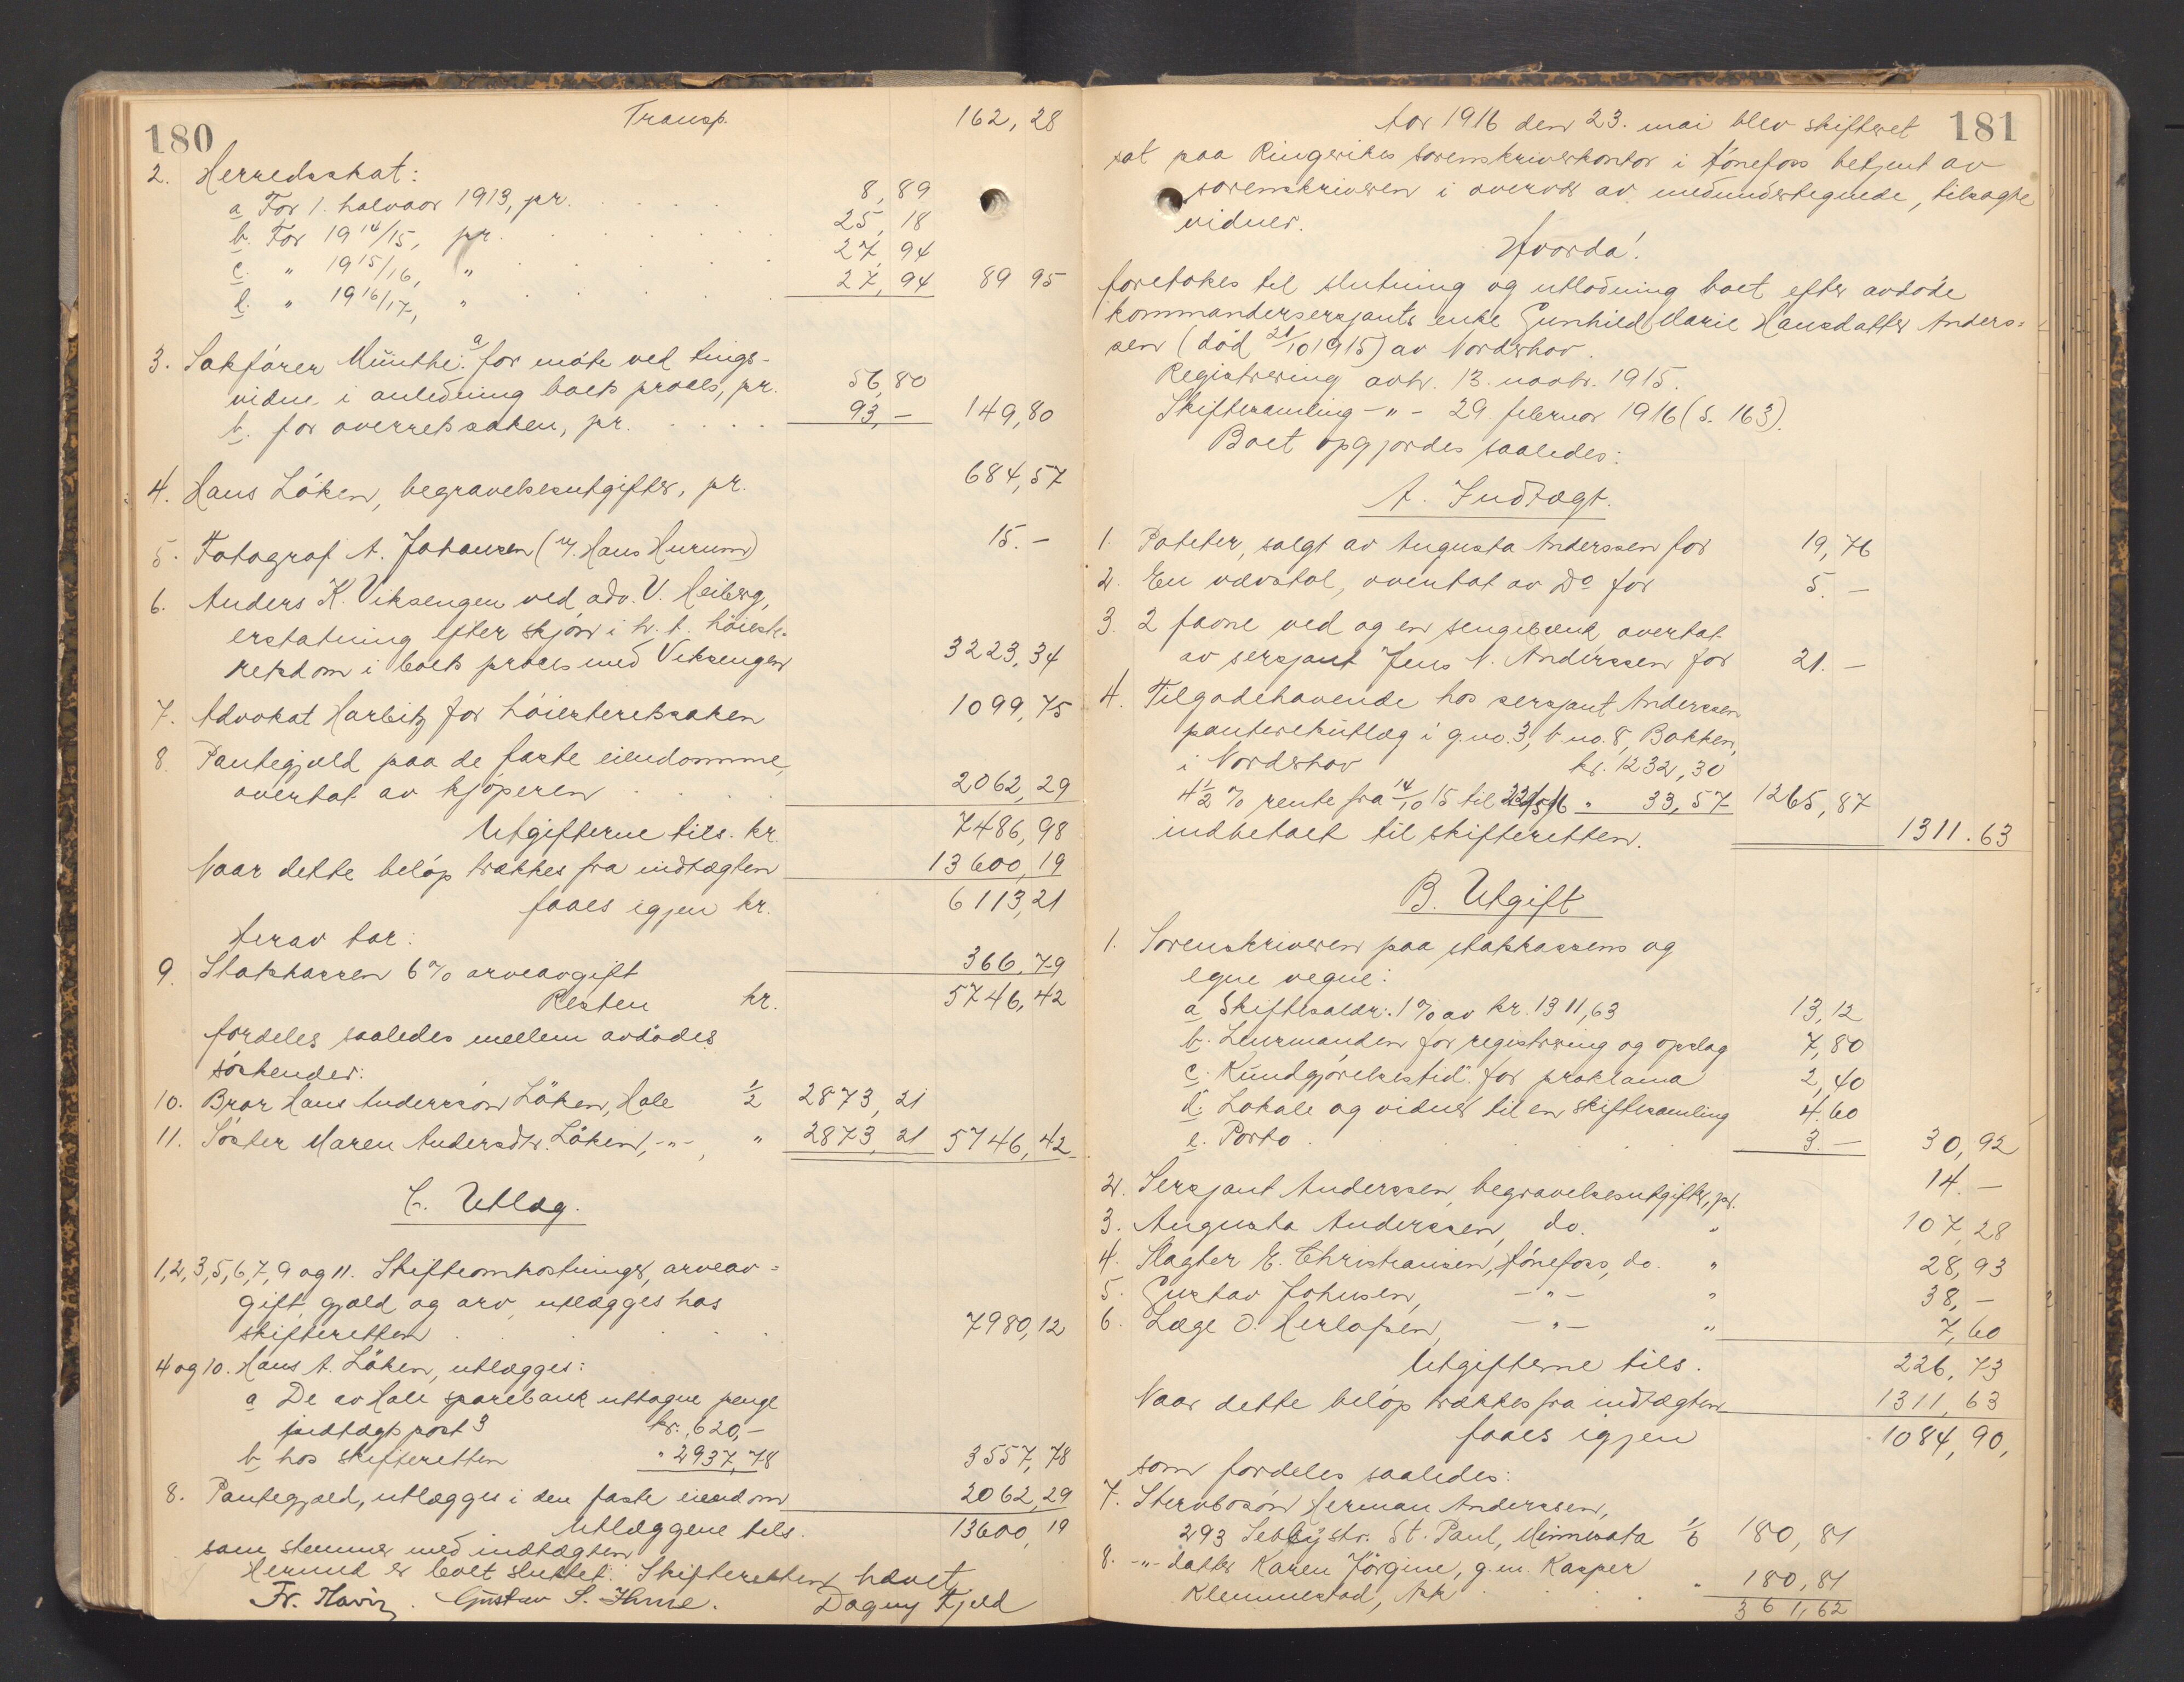 180
Transp. 162,28
2. Herredsskat:
a For 1. halvaar 1913, pr. 8,89
b. For 1914/15, pr. 25,18
c. " 1915/16, " 27,94
d. " 1916/17, " 27,94 89 95
3. Sakfører Münthe: a for møte ved tings-
vidne i anledning boets proces, pr. 56,80
b. for overretssaken, pr. 93,- 149,80
4. Hans Löken, begravelsesutgifter, pr. 684,57
5. Fotograf A. Johansen (v/. Hans Hurum) 15.-
6. Anders K. Viksengen ved adv. V. Heiberg,
erstatning efter skjøn i h. t. høieste-
retsdom i boets proces med Viksengen 3223,34
7. Advokat Harbitz for høiesteretssaken 1099,75
8. Pantegjæld paa de faste eiendomme,
overtat av kjøperen 2062,29
Utgifterne tils. kr. 7486,98
Naar dette beløp trækkes fra indtægten 13600,19
faaes igjen kr. 6113,21
Herav tar:
9. Statskassen 6% arveavgift 366,79
Resten kr. 5746,42
fordeles saaledes mellem avdødes
søskender:
10. Bror Hans Anderssøn Löken, Hole 1/2 2873,21
11. Søster Maren Andersdtr. Löken, -"-, " 2873,21 5746,42
C. Utlæg.
1,2,3,5,6,7,9 og 11. Skifteomkostninger, arveav=
gift, gjæld og arv, utlægges hos
skifteretten 7980,12
4 og 10. Hans A. Löken, utlægges:
a De av Hole sparebank uttagne penge
indtægtspost 3 kr. 620,-
b. hos skifteretten " 2937,78 3557,78
8. Pantegjæld, utlægges i den faste eiendom 2062,29
Utlæggene tils. 13600,19
som stemmer med indtægten
Hermed er boet sluttet. Skifteretten hævet
Fr. Gustav S. Dagny Fjeld
181
Aar 1916 den 23. mai blev skifteret
sat paa Ringerikes sorenskriverkontor i Hønefoss betjent av
sorenskriveren i overvær av medundertegnede, tilsagte
vidner.
Hvorda!
foretokes til slutning og utlodning boet efter avdøde
kommandersersjants enke Gunhild Marie Hansdatter Anders=
sen (død 21/10 1915) av Norderhov.
Registrering avh. 13. novbr. 1915.
Skiftesamling -"- 29. februar 1916 (S. 163).
Boet opgjordes saaledes:
A. Indtægt.
1. Poteter, solgt av Augusta Anderssen for 19,76
2. En vævstol, overtat av Do for 5.-
3. 2 favne ved og en sengebænk overtat
av sersjant Jens N. Anderssen for 21.-
4. Tilgodehavende hos sersjant Anderssen
panteretsutlæg i g.no. 3, b.no. 8, Bakken,
i Norderhov kr. 1232,30
4 1/2 % rente fra 14/10 15 til 22/5 16 " 33,57 1265,87
indbetalt til skifteretten. 1311.63
B. Utgift
1. Sorenskriveren paa statskassens og
egne vegne:
a Skiftesalær: 1% av kr. 1311,63 13,12
b. Lensmanden for registrering og opslag 7,80
c. Kundgjørelsestid. for proklama 2,40
d. Lokale og vidner til en skiftesamling 4.60
e. Porto 3.- 30,92
2. Sersjant Anderssen, begravelsesutgifter, pr. 14.-
3. Augusta Anderssen, do. " 107,28
4. Slagter E. Christiansen, Hønefoss, do. " 28,93
5. Gustav Johnsen, -"- " 38,-
6. Læge O. Herlofsen, -"- " 7,60
Utgifterne tils. 226,73
Naar dette beløp trækkes fra indtægten 1311,63
faaes igjen 1084,90,
som fordeles saaledes:
7. Stervbosøn Herman Anderssen,
293 str. St. Paul, Minnesota 1/6 180,81
8. -"- datter Karen Jørgine, g.m. Kasper
Klemmestad, Ask " 180,81
361,62